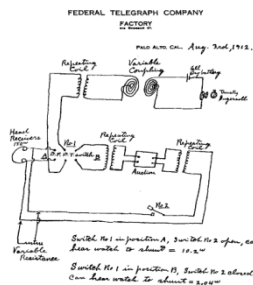 FEDERAL TELEGRAPH COMPANY
FACTORY
PALO ALTO, CAL. Aug. 3rd, 1912.
Repeating Coil
Variable Coupling
Cell
Dry battery
Ingersoll
Head Receivers
No 1
D.P.D.T. switch
Repeating Coil
Audion
Repeating Coil
No 2
Variable Resistance
Switch No 1 in position A, Switch No 2 open, co
hear watch to shunt = 10.2ω
Switch No 1 in position B, Switch No 2 closed
Can hear watch to shunt = 2.04ω